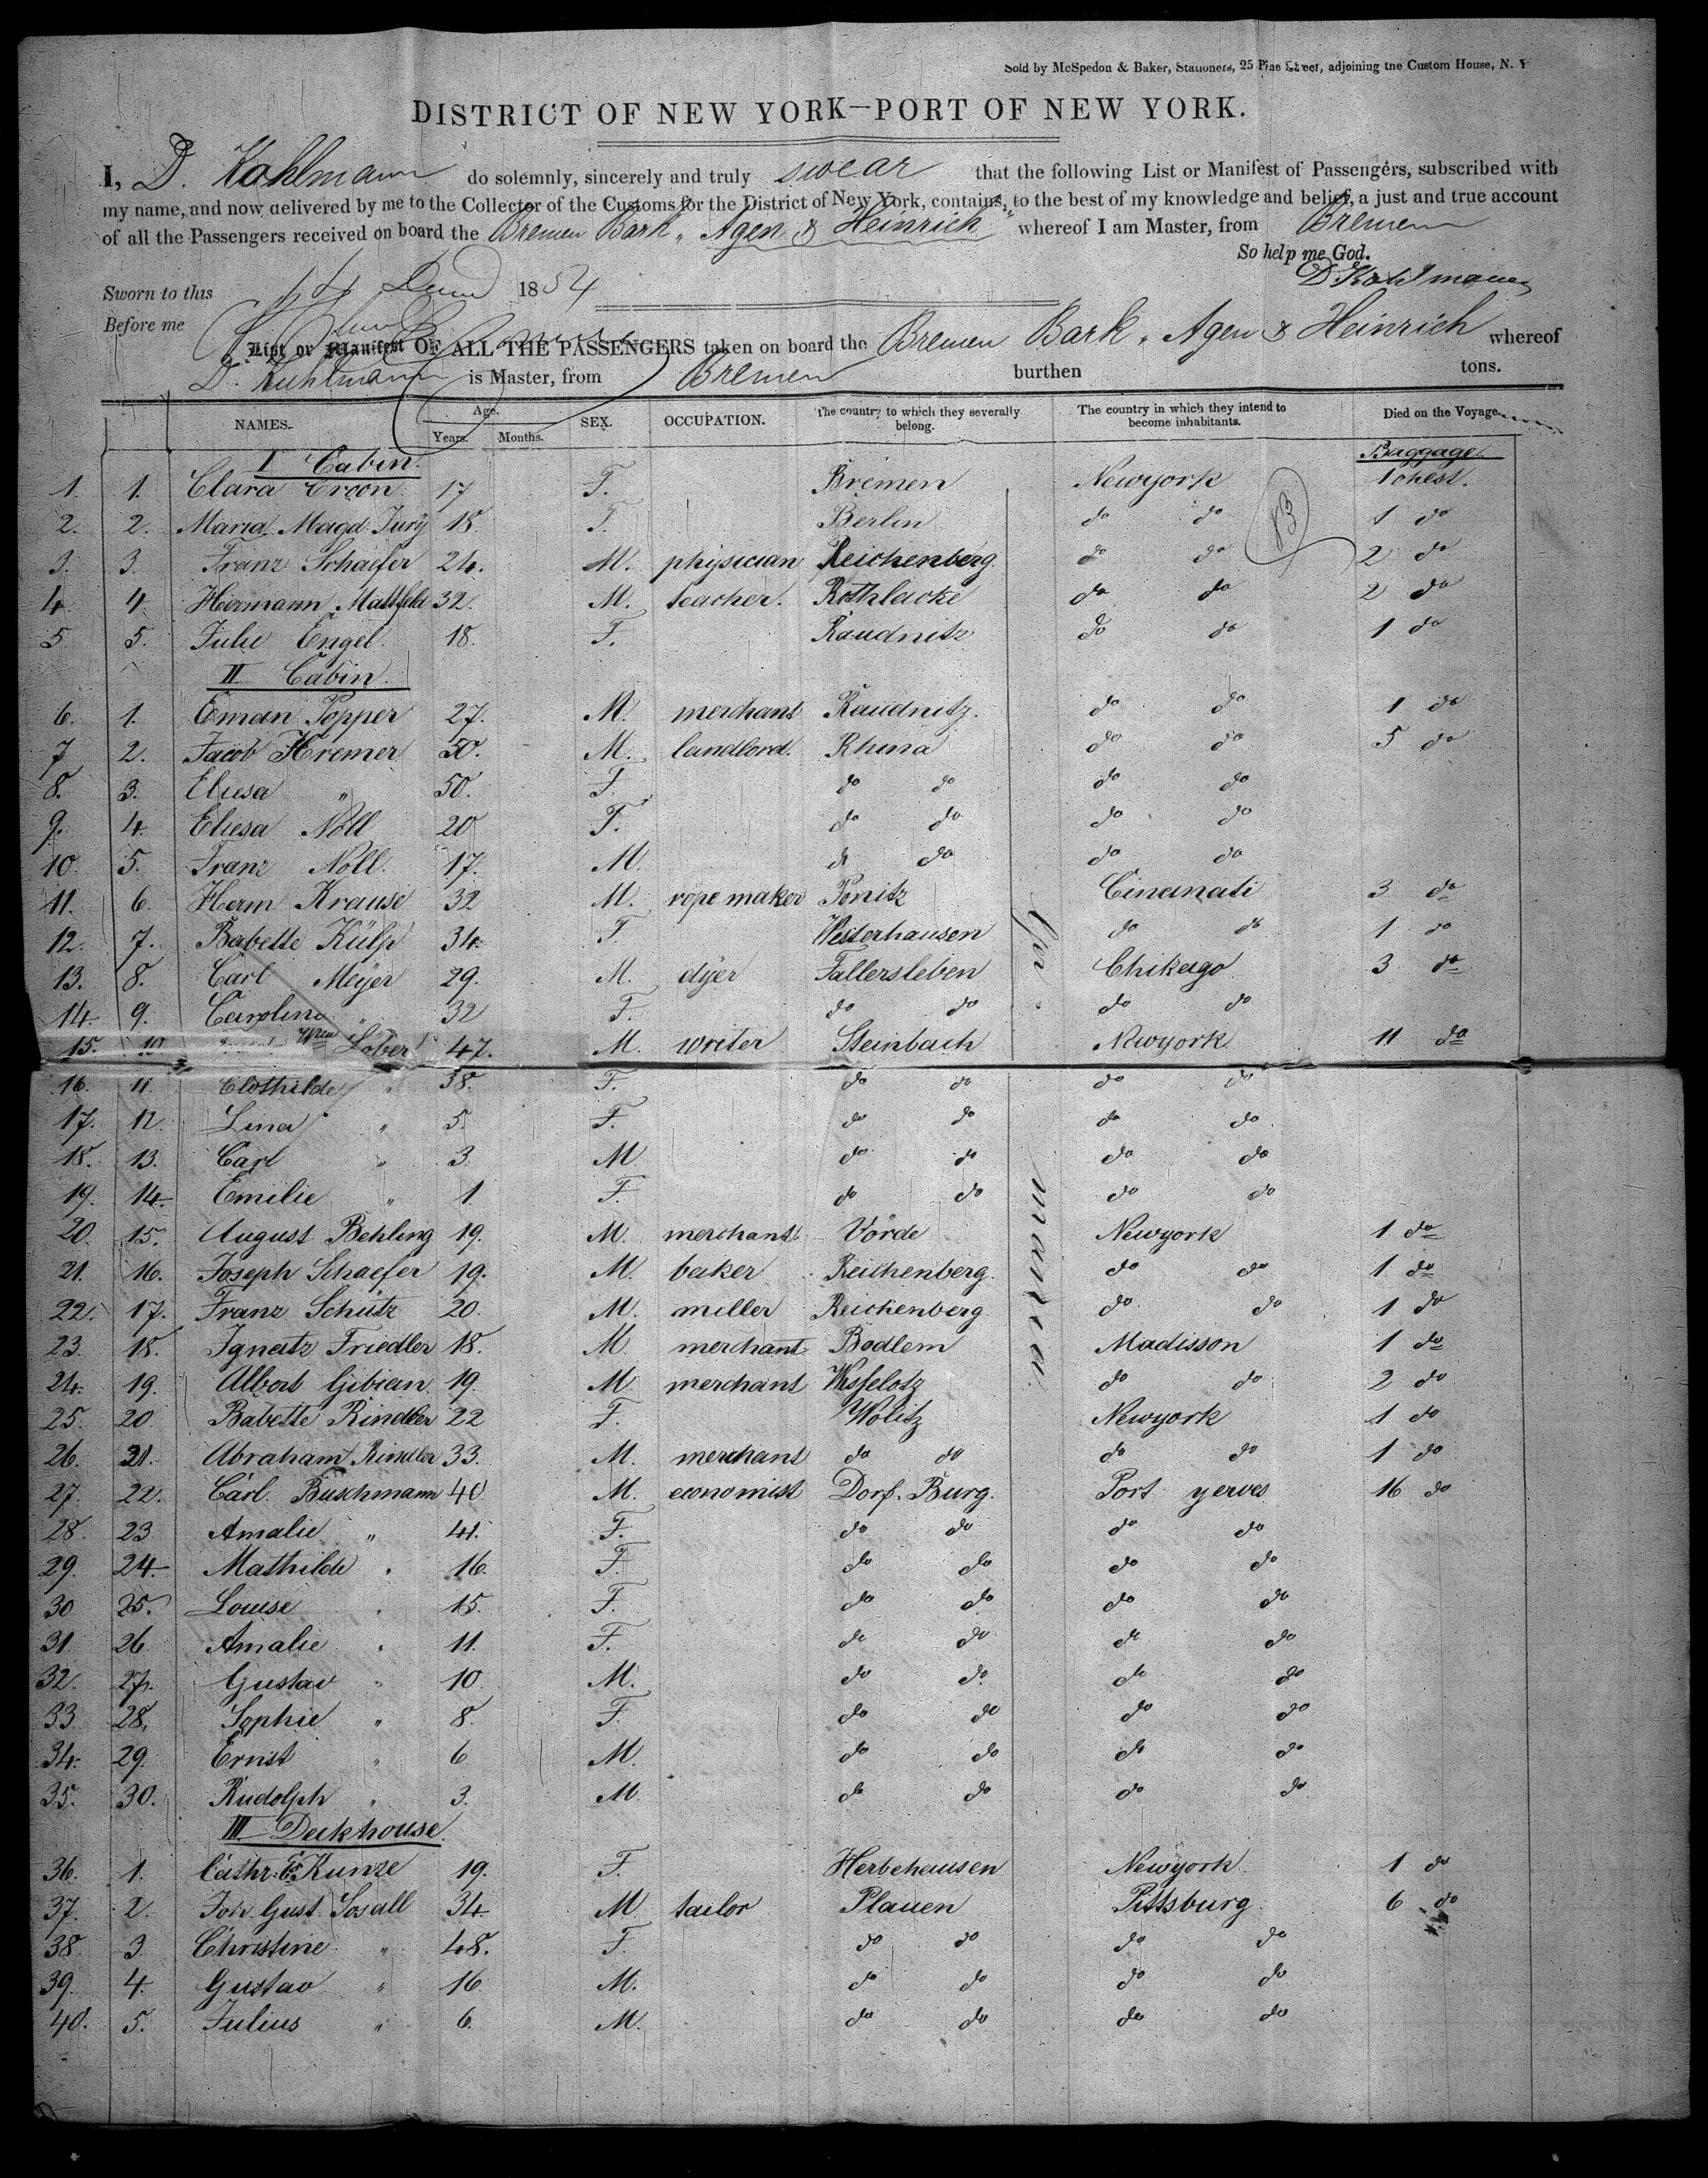 Sold by McSpedon & Baker, Stationers, 25 Pine Street, adjoining the Custom House, N. Y
DISTRICT OF NEW YORK—PORT OF NEW YORK.
I, D. Kohlmann do solemnly, sincerely and truly swear that the following List or Manifest of Passengers, subscribed with
my name, and now delivered by me to the Collector of the Customs for the District of New York, contains, to the best of my knowledge and belief, a just and true account
of all the Passengers received on board the Bremen Bark „ Agen & Heinrich" whereof I am Master, from Bremen
So help me God.
Sworn to this 14 1854 D Kohlmann
Before me
List or Manifest OF ALL THE PASSENGERS taken on board the Bremen Bark „ Agen & Heinrich whereof
D. Kuhlmann is Master, from Bremen burthen tons.
NAMES. Age. Years. Months. SEX. OCCUPATION. The country to which they severally belong. The country in which they intend to become inhabitants. Died on the Voyage.
I Cabin. Baggage.
1. 1. Clara Croon 17 F. Bremen Newyork 1 chest.
83
2. 2. Maria Magd. Jury 18. F. Berlin do do 1 do
3. 3. Franz Schaefer 24. M. physician Reichenberg do do 2 do
4. 4. Hermann Mattfeld 32. M. teacher. Rothlacke do do 2 do
5. 5. Julie Engel. 18. F. Raudnitz do do 1 do
II Cabin.
6. 1. Eman Popper 27. M. merchant Raudnitz. do do 1 do
7 2. Jacob Kremer 50. M. landlord. Rhina do do 5 do
8. 3. Eliesa „ 50. F. do do do do
9. 4. Eliesa Noll 20 F. do do do do
10. 5. Franz Noll. 17. M. do do do do
11. 6. Herm Krause 32 M. rope maker Ponitz Cincinnati 3 do
12. 7. Babette Külp 34. F. Westerhausen do do 1 do
13. 8. Carl Meÿer 29. M. dÿer Fallersleben Chikago 3 do
14. 9. Caroline „ 32 F. do do do do
15. 10 Lober 47. M. writer Steinbach Newyork 11 do
16. 11. Clothilde „ 38. F. do do do do
17. 12. Lina „ 5. F. do do do do
18. 13. Carl „ 3 M do do do do
19. 14. Emilie „ 1 F. do do do do
20. 15. August Behling 19. M. merchant Vörde Newyork 1 do
21. 16. Joseph Schaefer 19. M. baker Reichenberg. do do 1 do
22. 17. Franz Schütz 20. M. miller Reichenberg do do 1 do
23 18. Ignatz Friedler 18. M. merchant Bodlem Madisson 1 do
24. 19. Albert Gibian 19. M. merchant Wesselotz do do 2 do
25. 20 Babette Rindler 22 F. Wolitz Newyork 1 do
26. 21. Abraham Rindler 33. M. merchant do do do do 1 do
27. 22. Carl. Buschmann 40 M. economist Dorf. Burg. Port yerves 16 do
28. 23 Amalie „ 41. F. do do do do
29. 24 Mathilde „ 16. F. do do do do
30 25. Louise „ 15. F. do do do do
31. 26 Amalie „ 11. F. do do do do
32. 27. Gustav „ 10. M. do do do do
33 28. Sophie „ 8. F. do do do do
34. 29. Ernst „ 6 M. do do do do
35. 30. Rudolph „ 3. M. do do do do
Germania
III Deckhouse.
36. 1. Cathr. E. Kunze 19. F. Herbehausen Newyork. 1 do
37. 2. Joh. Gust. Sosall 34. M tailor Plauen Pittsburg. 6 do
38 3. Christine „ 48. F. do do do do
39. 4. Gustav „ 16 M. do do do do
40. 5. Julius „ 6. M. do do do do